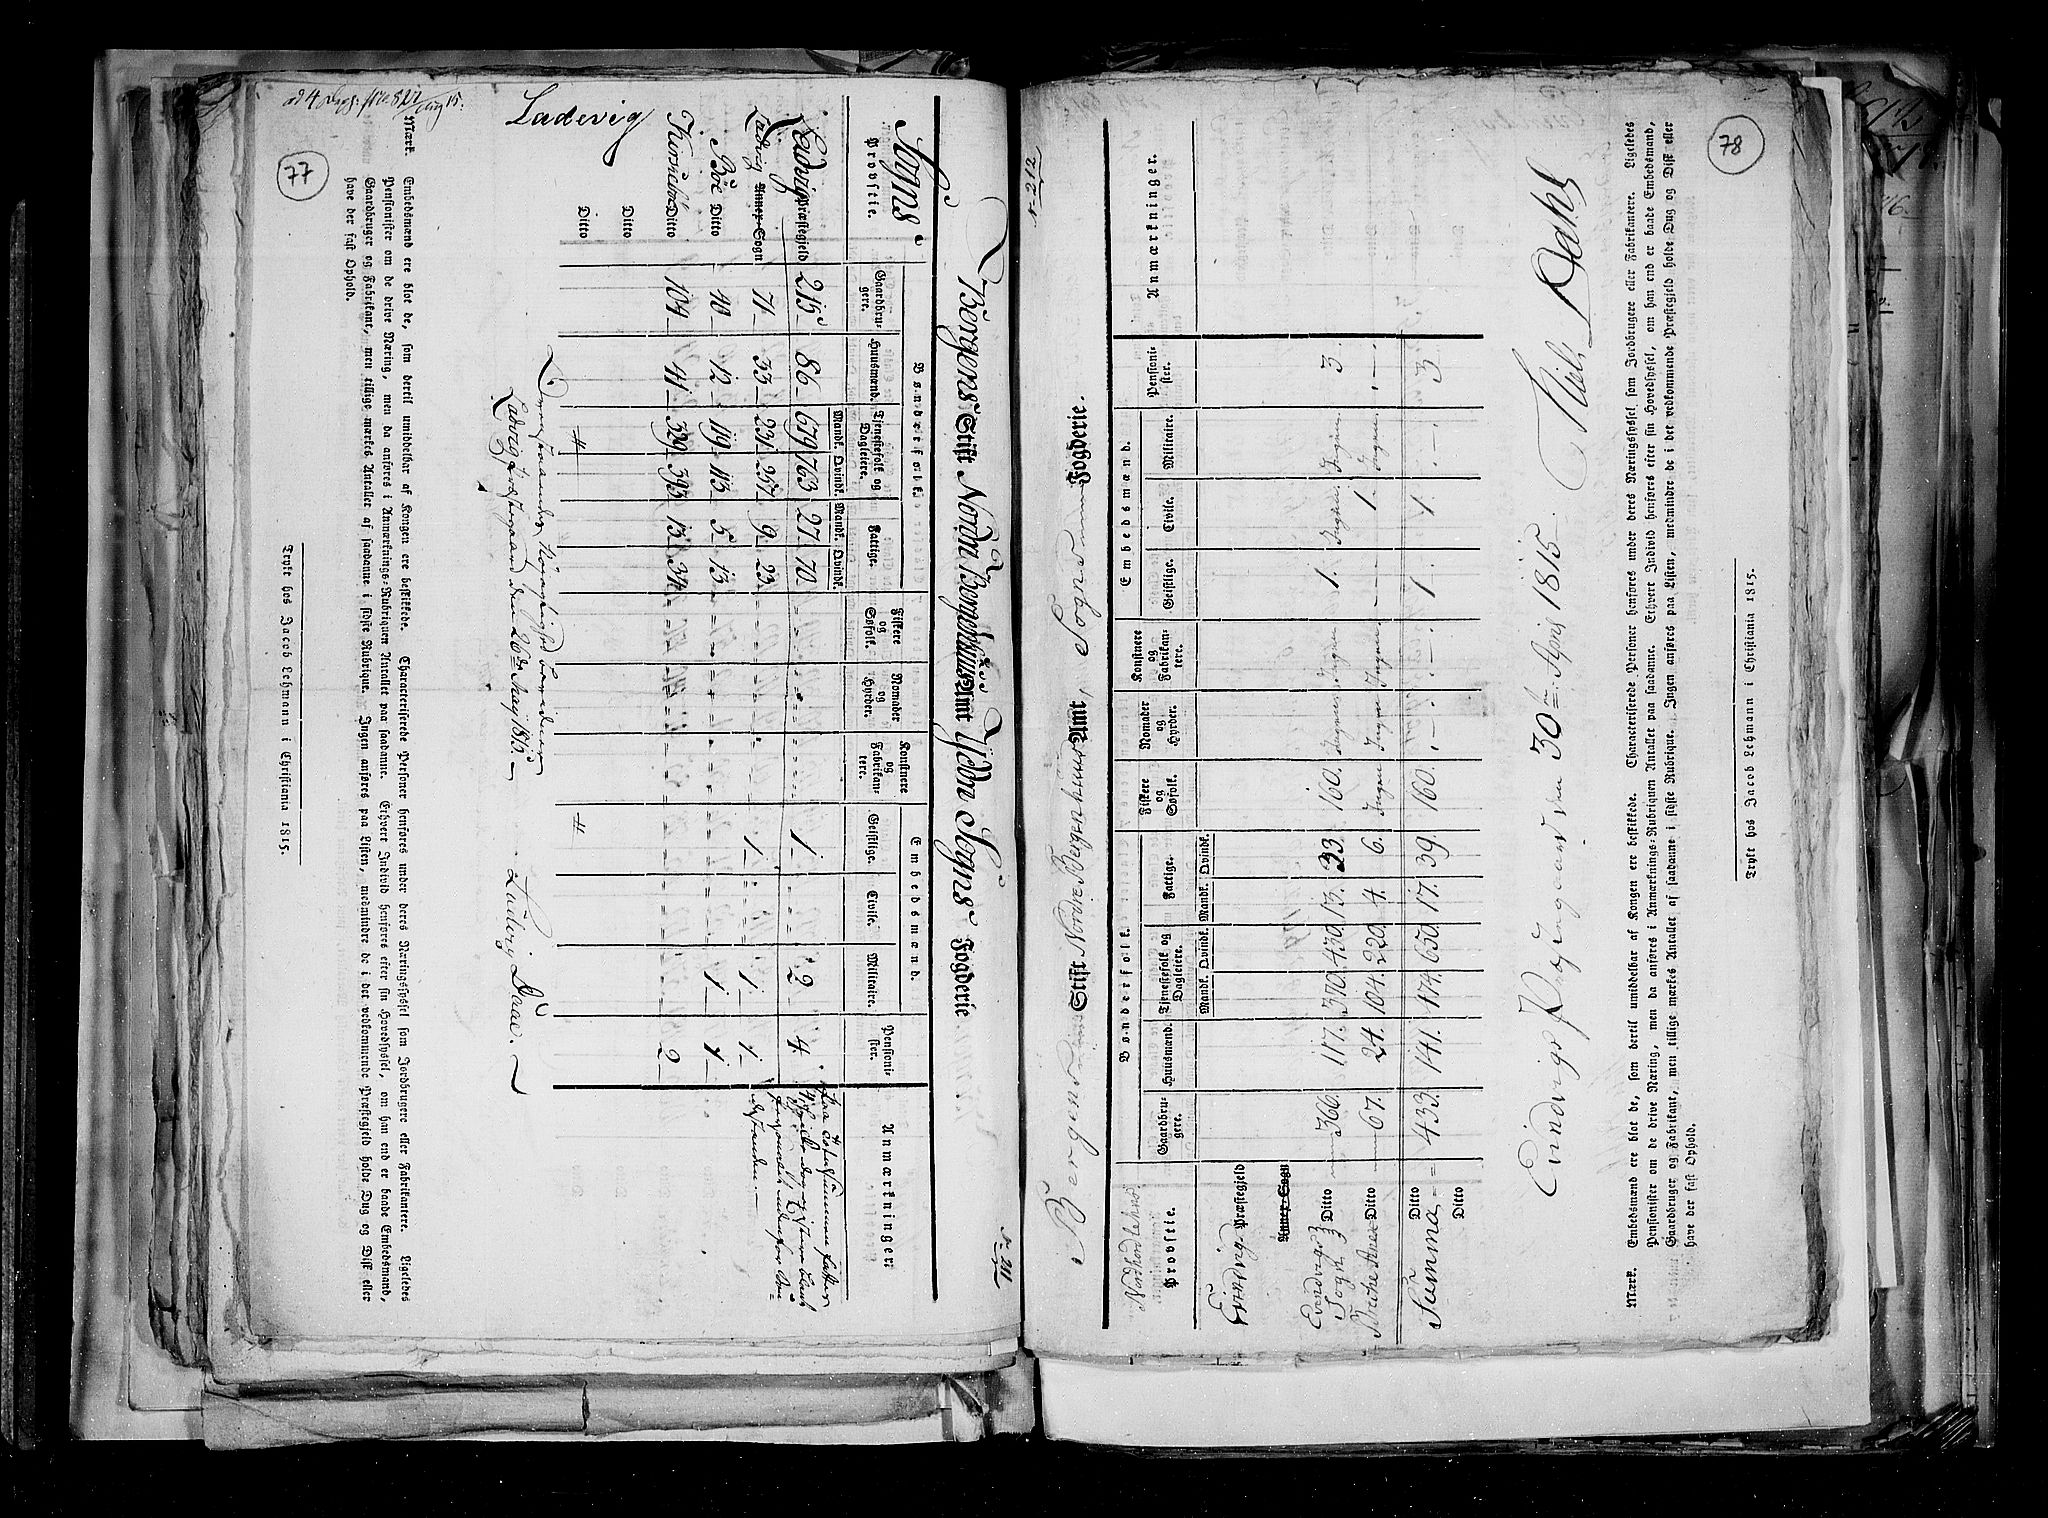 77
Ladevig
No 211
Bergens Stift Nordre Bergenhuus Amt Yttre Sogns Fogderie
Sogns Provstie.
Bønderfolk.
Embedsmænd.
Gaardbrugere. Huusmænd. Tjenestefolk og Dagleiere. Mandk. Qvindk. Fattige. Mandk. Qvindk. Fiskere og Søfolk. Nomader og Hyrder. Konstnere og Fabrikantere. Geistlige. Civile. Militaire. Pensionister. Anmærkninger.
Ladvig Præstegjeld 215 86 679 763 27 70 " " " 1 " 2 4.
Ladvig Annex-Sogn 71 33 231 257 9 23 " " " 1 " 1 1
Böe Ditto 40 12 119 113 5 13 " " " " " 1 1
Kirsebøe Ditto 104 41 329 393 13 34 " " " " " " 2
Ditto
Ditto
Ladvig Præstegaard den 26de May 1815
Ludvig Daae.
Mærk. Embedsmænd ere blot de, som dertil umiddelbar af Kongen ere beskikkede. Characteriserede Personer henføres under deres Næringssyssel som Jordbrugere eller Fabrikantere. Ligeledes
Pensionister om de drive Næring, men da anføres i Anmærknings-Rubriquen Antallet paa saadanne. Ethvert Individ henføres efter sin Hovedsyssel, om han end er baade Embedsmand,
Gaardbruger og Fabrikant, men tillige mærkes Antallet af saadanne i sidste Rubrique. Ingen anføres paa Listen, medmindre de i det vedkommende Præstegjeld holde Dug og Disk eller
have der fast Ophold.
Trykt hos Jacob Lehmann i Christiania 1815.
78
No 212
Bergens Stift Nordre Bergenhuus Amt, Sogns Fogderie.
Nordhordlehns Provstie.
Bønderfolk.
Embedsmænd.
Gaardbrugere. Huusmænd. Tjenestefolk og Dagleiere. Mandk. Qvindk. Fattige. Mandk. Qvindk. Fiskere og Søfolk. Nomader og Hyrder. Konstnere og Fabrikantere. Geistlige. Civile. Militaire. Pensionister. Anmærkninger.
Evindvig Præstegjeld
Annex-Sogn
Evindvigs Sogn Ditto 366. 117. 370. 430. 13. 33. 160. Ingen Ingen 1. Ingen Ingen 3.
Ditto 67. 24. 104. 220. 4. 6. Ingen Ingen Ingen 1. Ingen
Summa Ditto 433. 141. 474. 650. 17. 39. 160. 1. 1. 3
Ditto
Evindvigs Præstegaard den 30te April 1815. Niels Dahl
Mærk. Embedsmænd ere blot de, som dertil umiddelbar af Kongen ere beskikkede. Characteriserede Personer henføres under deres Næringssyssel, som Jordbrugere eller Fabrikantere. Ligeledes
Pensionister om de drive Næring, men da anføres i Anmærknings-Rubriquen Antallet paa saadanne. Ethvert Individ henføres efter sin Hovedsyssel, om han end er baade Embedsmand,
Gaardbruger og Fabrikant, men tillige mærkes Antallet af saadanne i sidste Rubrique. Ingen anføres paa Listen, medmindre de i det vedkommende Præstegjeld holde Dug og Disk eller
have der fast Ophold.
Trykt hos Jacob Lehmann i Christiania 1815.